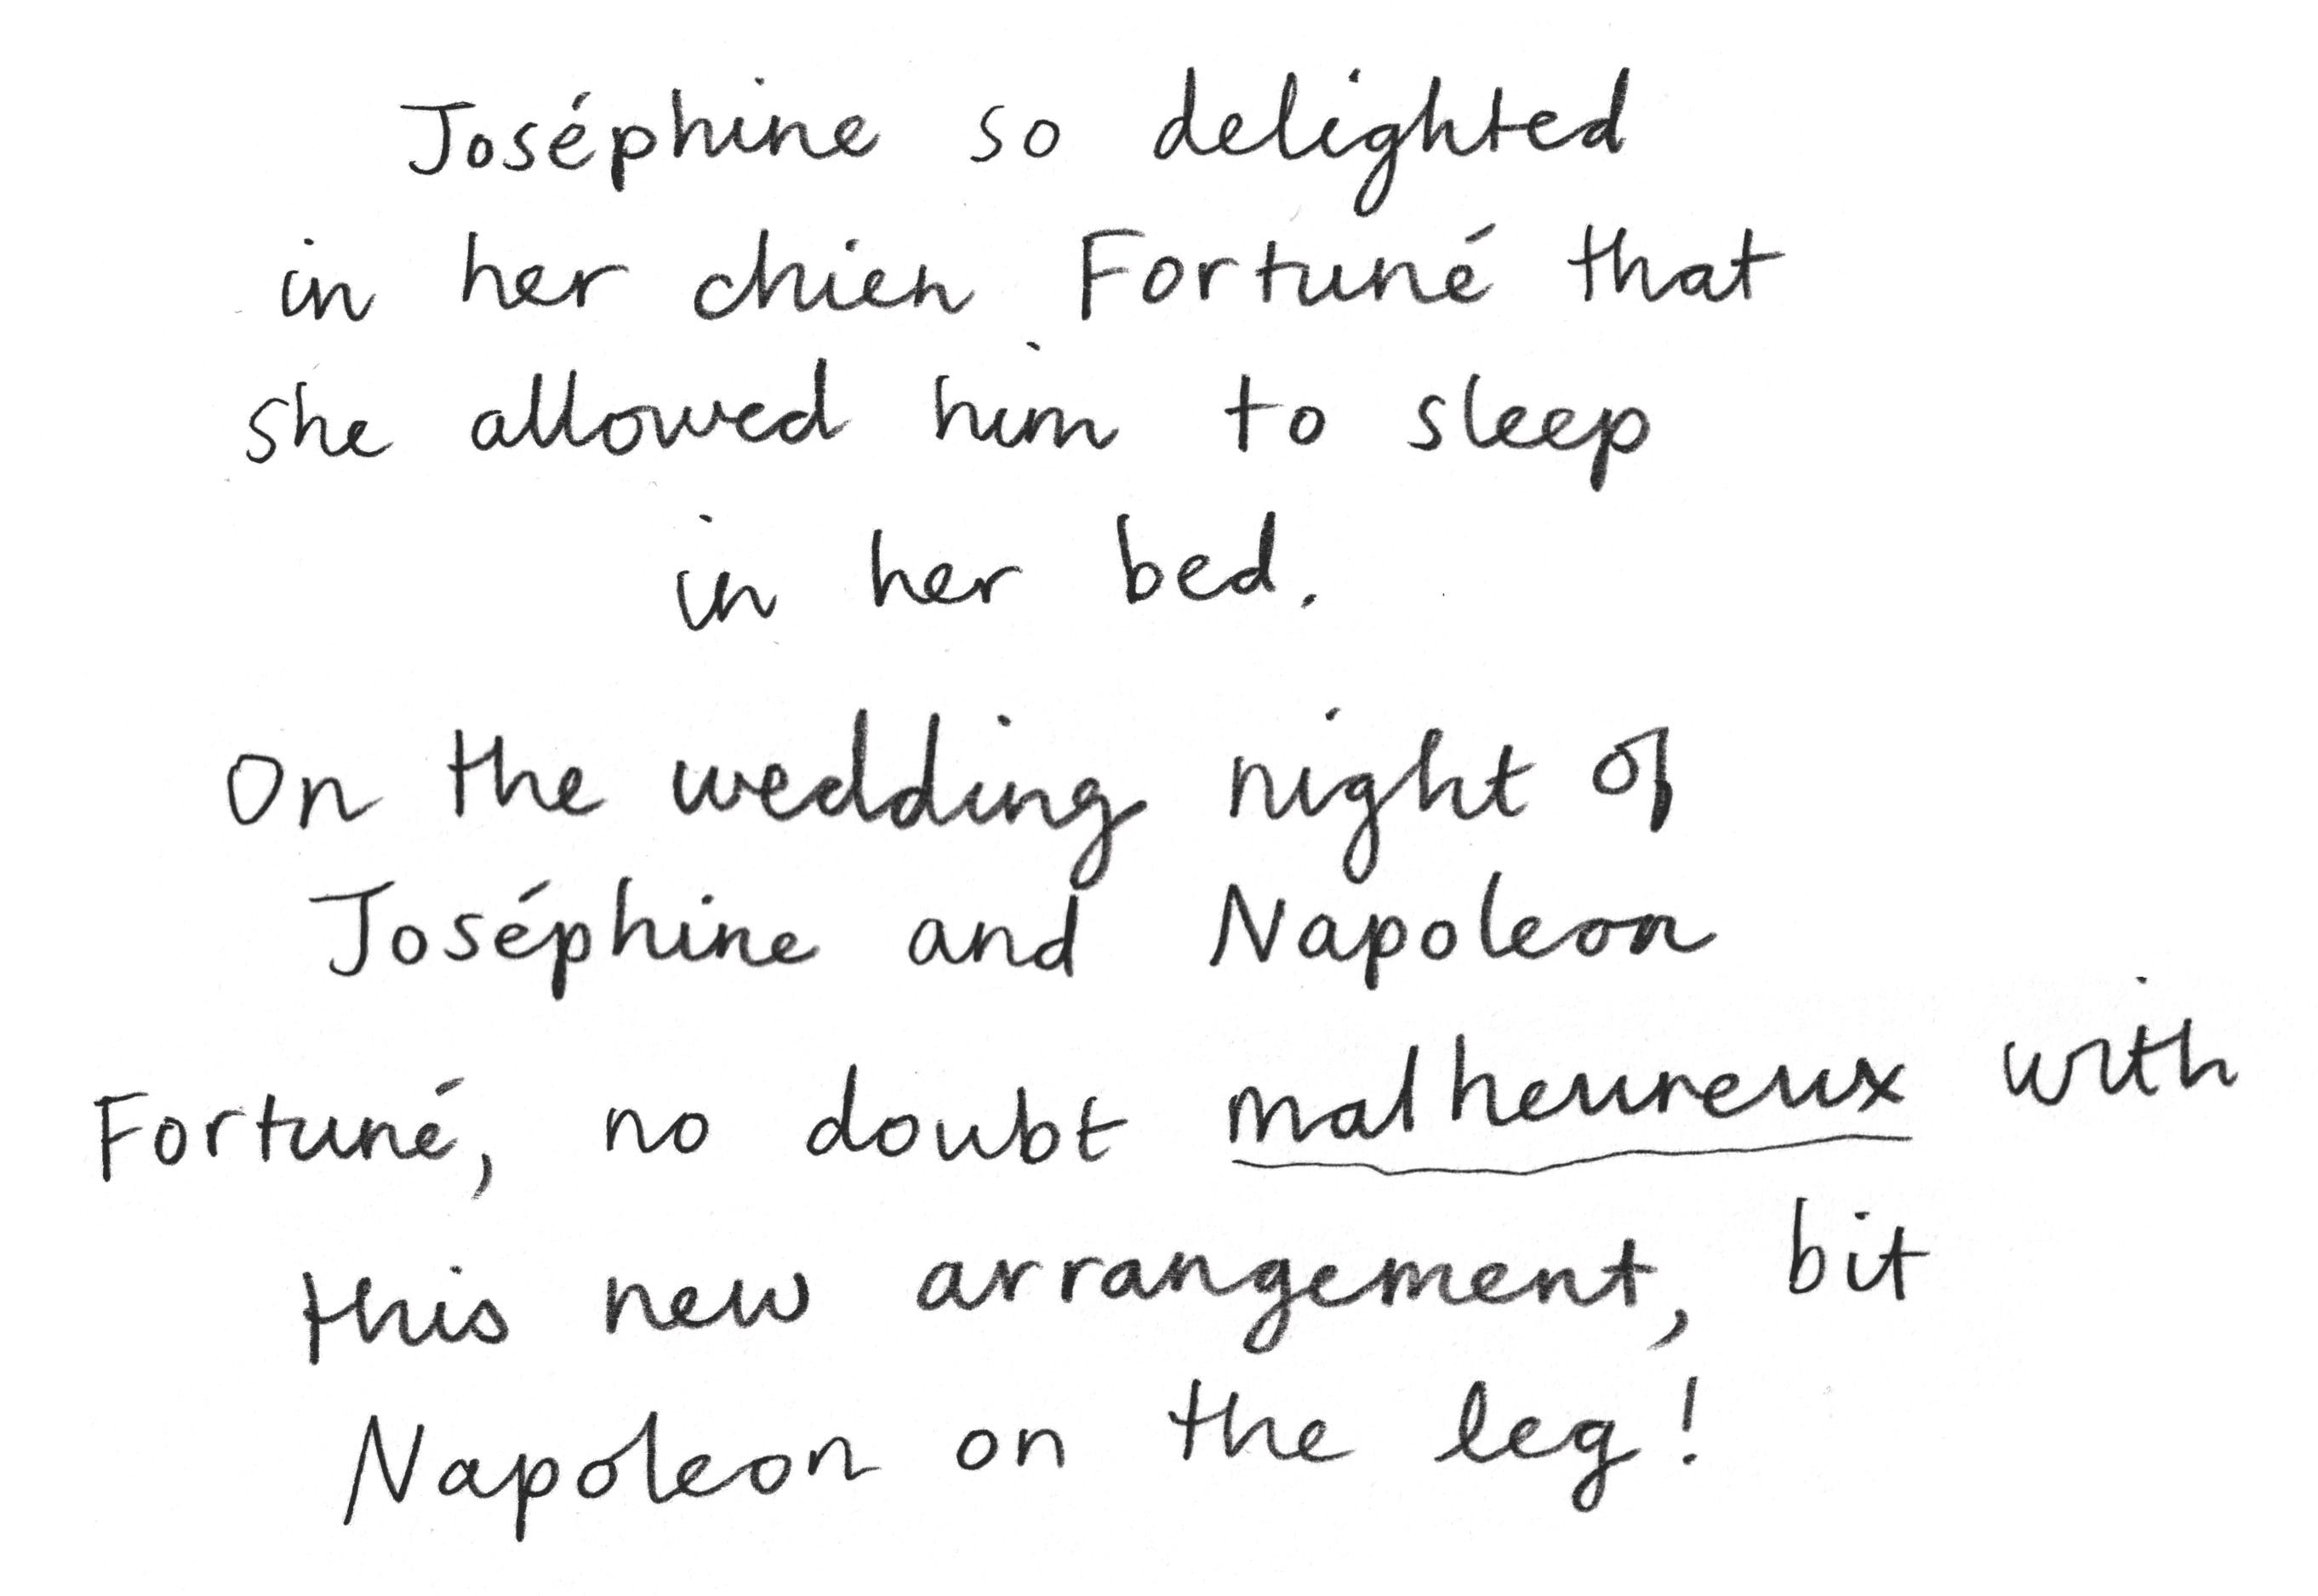 Joséphine so delighted
in her chien Fortuné that
she allowed him to sleep
in her bed.
On the wedding night of
Joséphine and Napoleon
Fortuné, no doubt malheureux with
this new arrangement, bit
Napoleon on the leg!